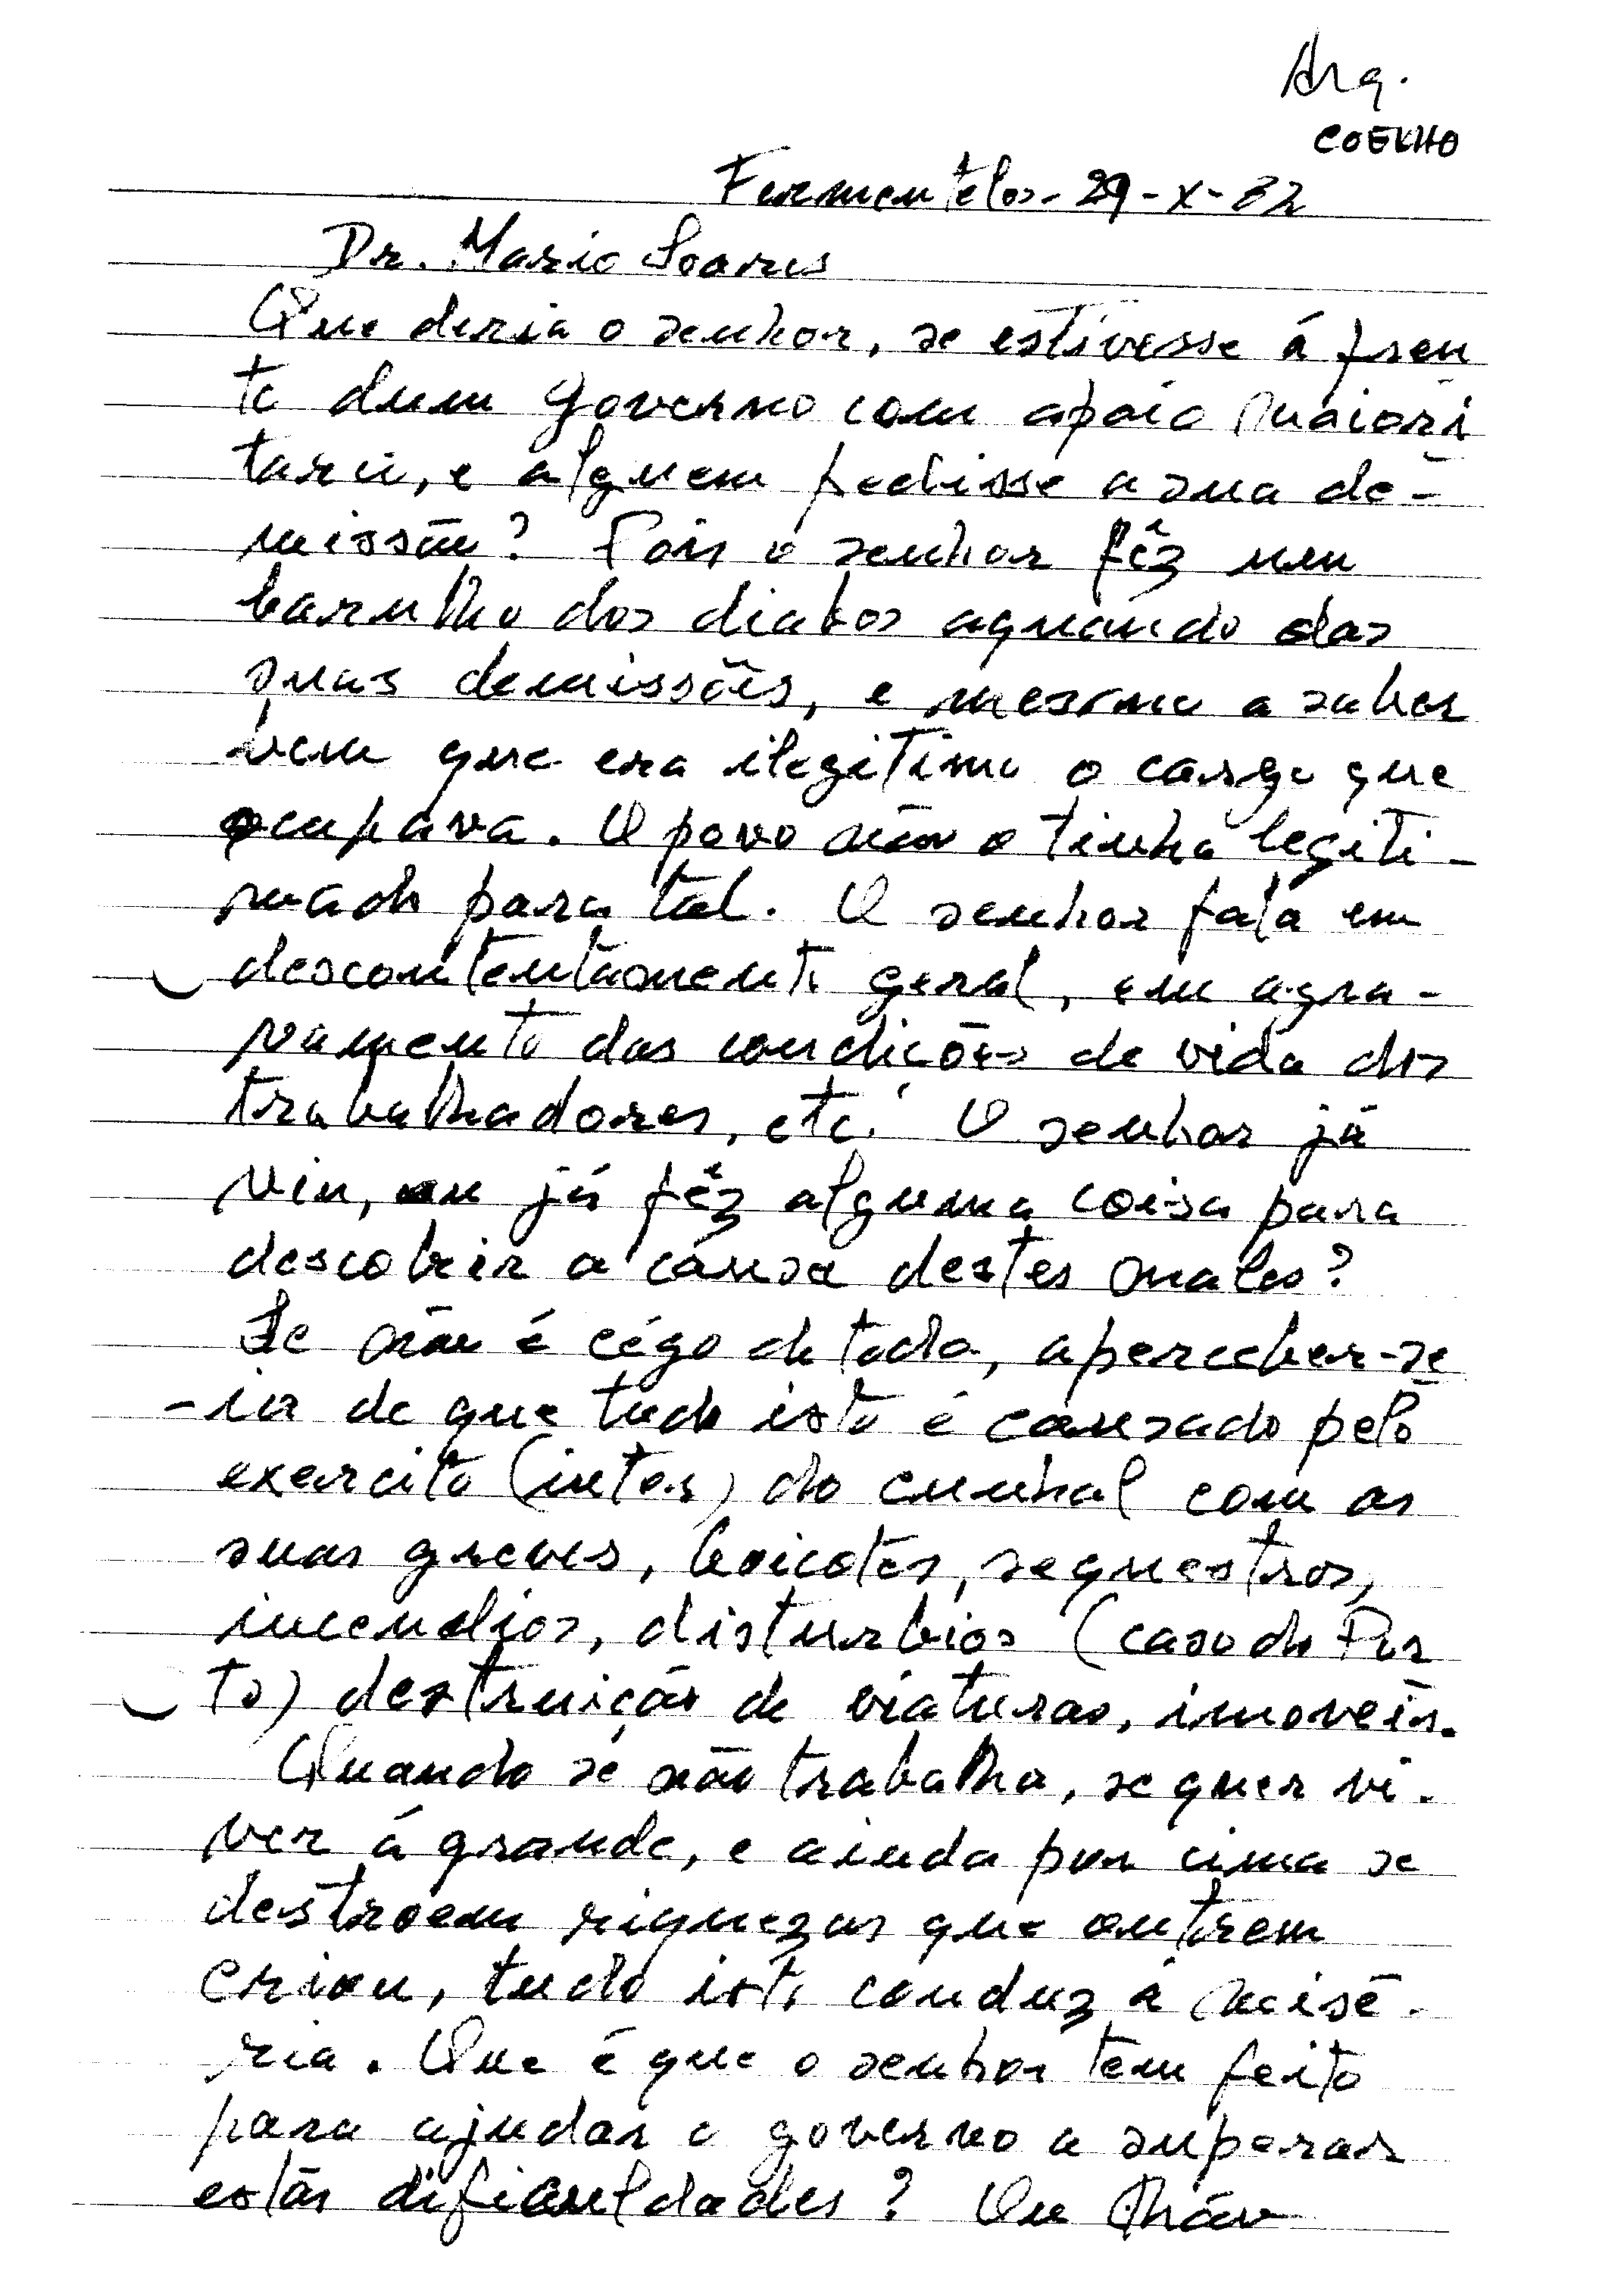 Arq.
COELHO
Fermentelos - 29-X-82
Dr. Mario Soares
Que diria o senhor, se estivesse á fren
te dum governo com apoio maiori
tario, e alguem pedisse a sua de-
missão? Pois o senhor fêz um
barulho dos diabos aquando das
suas demissões, e mesmo a saber
bem que era ilegitimo o cargo que
ocupava. O povo não o tinha legiti-
mado para tal. O senhor fala em
descontentamento geral, em agra-
vamento das condições de vida dos
trabalhadores, etc. O senhor já
viu, ou já fêz alguma coisa para
descobrir a causa destes males?
Se não é cégo de todo, aperceber-se
-ia de que tudo isto é causado pelo
exercito (inter) do cunhal com as
suas greves, boicotes, sequestros,
incendios, disturbios (caso do Por
to) destruição de viaturas, imoveis.
Quando se não trabalha, se quer vi-
ver á grande, e ainda por cima se
destroem riquezas que outrem
criou, tudo isto conduz á misé-
ria. Que é que o senhor tem feito
para ajudar o governo a superar
estas dificuldades? Ou não